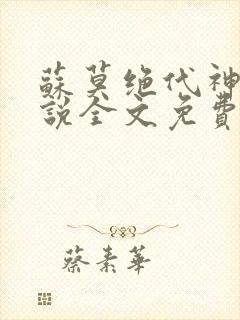 蘇莫绝代神
說全文免費
蔡素華